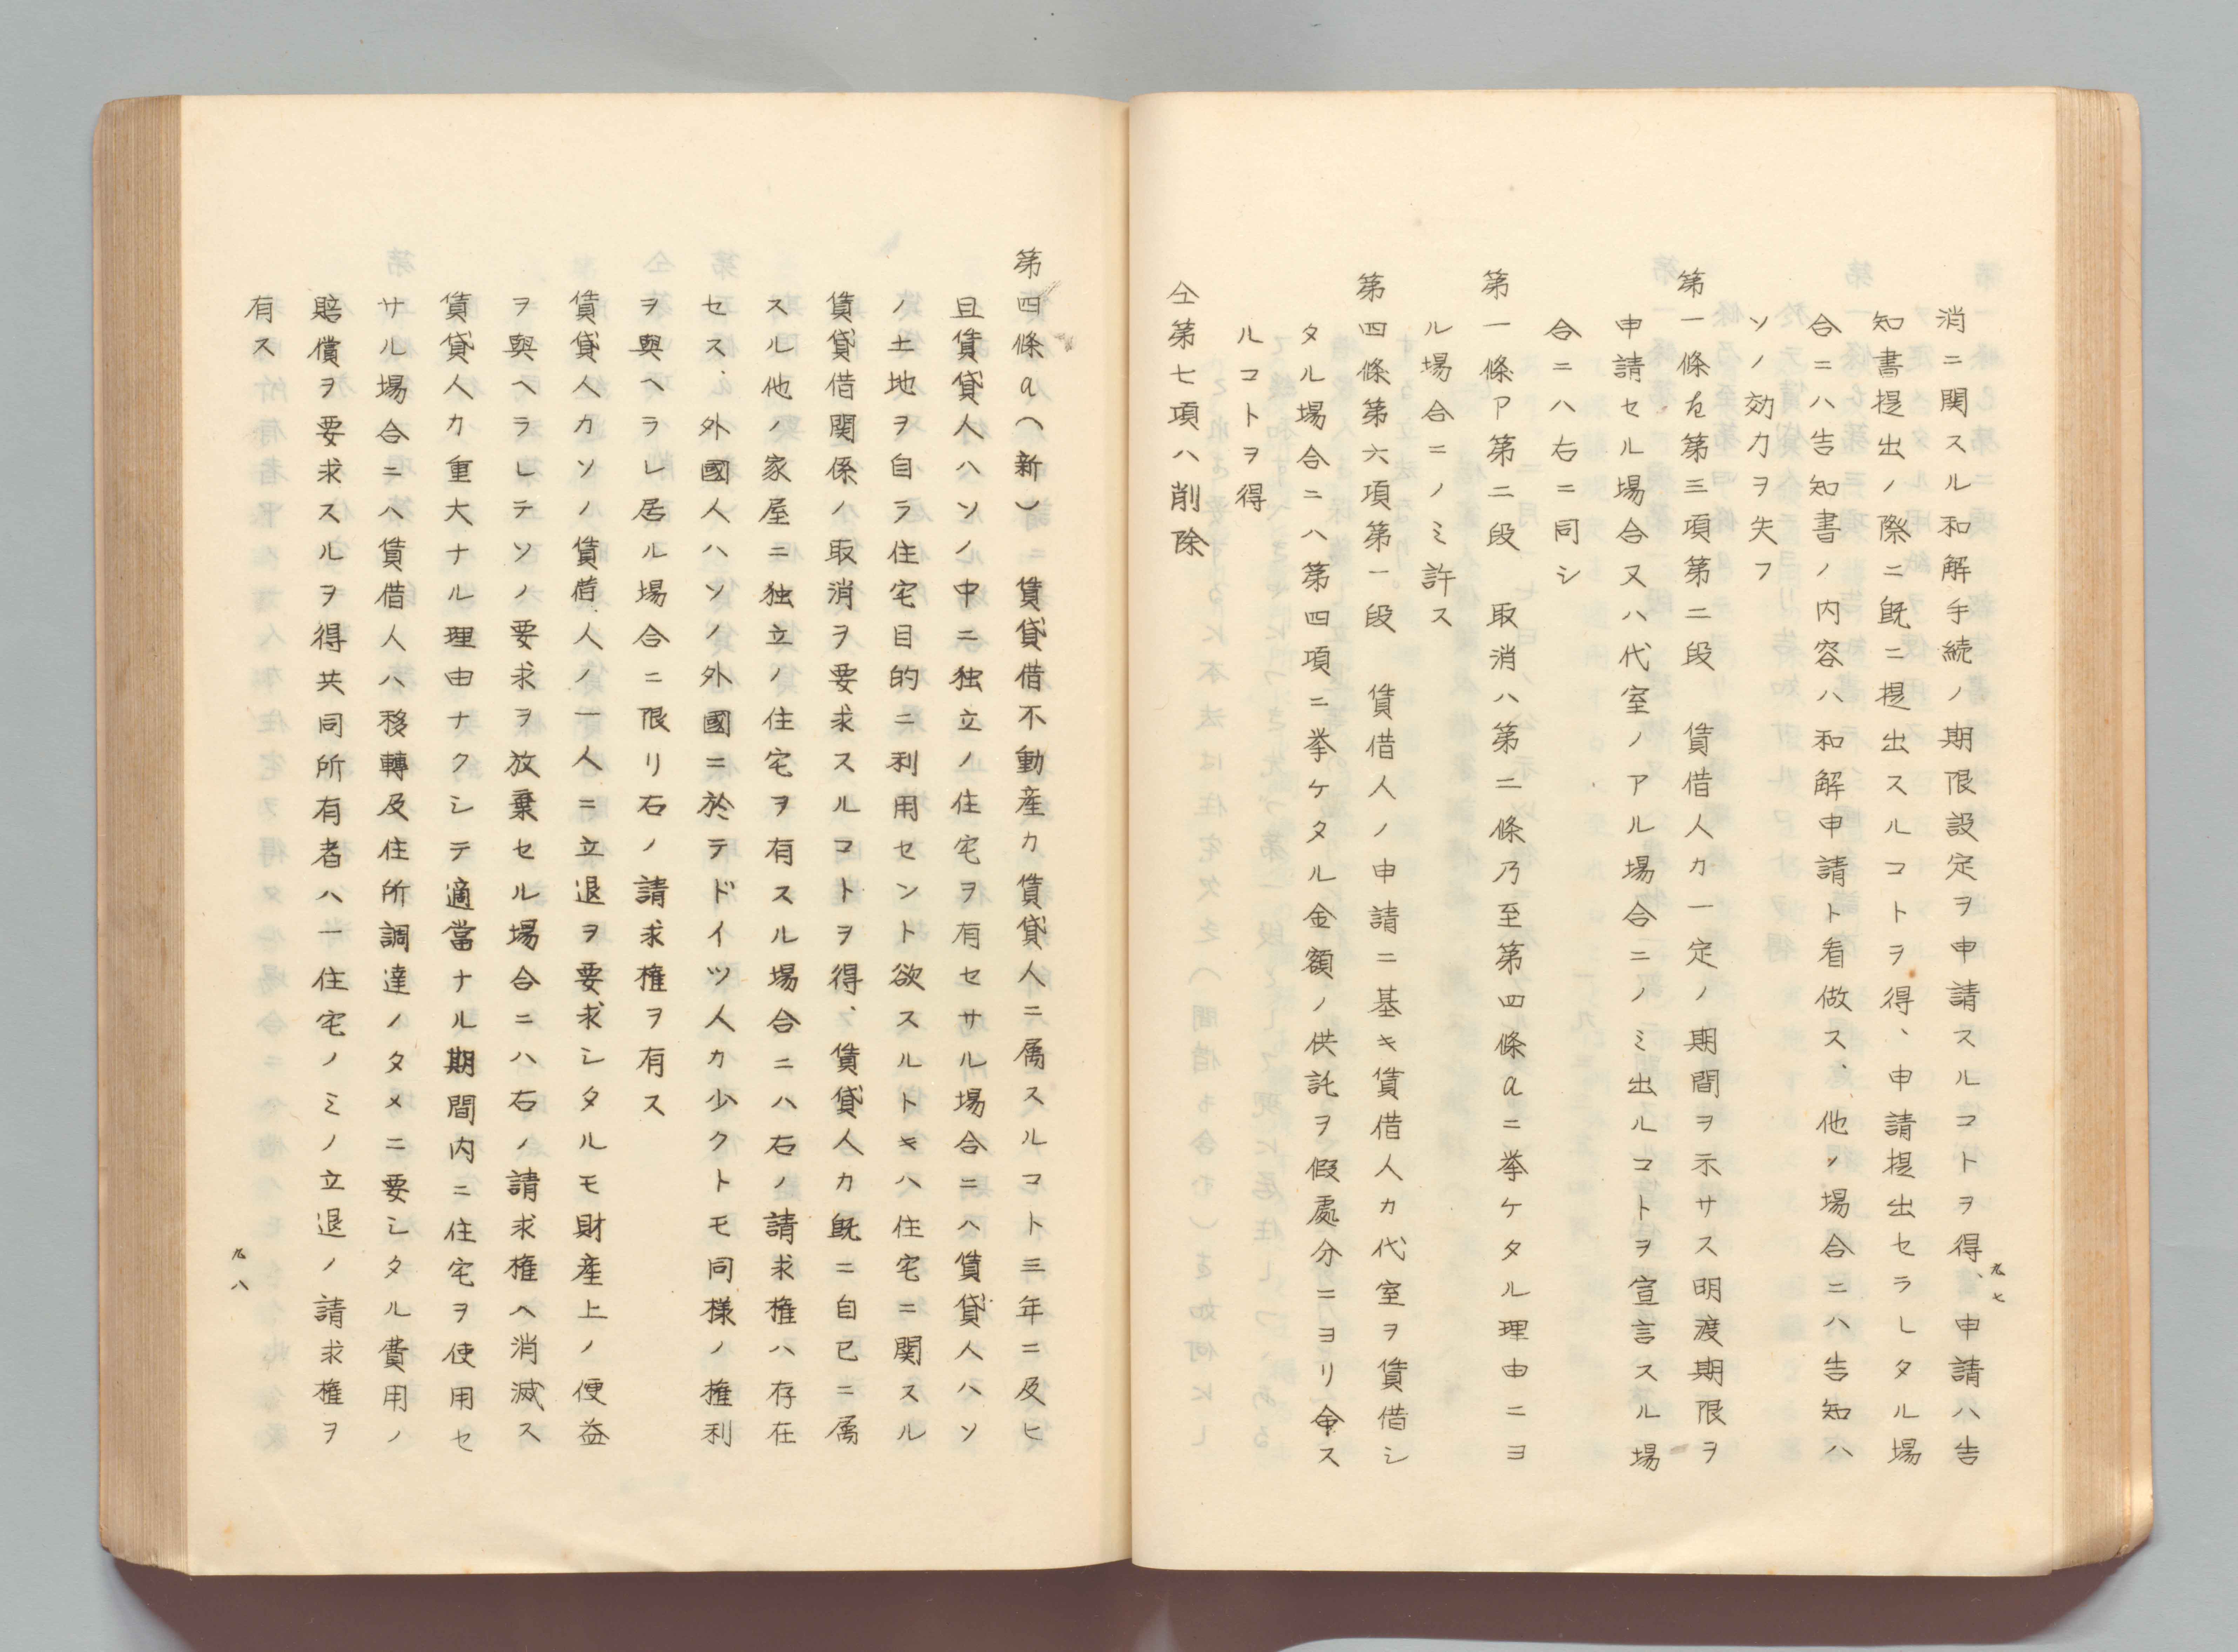 九七
消ニ関スル和解手続ノ期限設定ヲ申請スルコトヲ得、申請ハ告
知書提出ノ際ニ既ニ提出スルコトヲ得、申請提出セラレタル場
合ニハ告知書ノ内容ハ和解申請ト看做ス、他ノ場合ニハ告知ハ
ソノ効力ヲ失フ
第一條を第三項第二段　賃借人カ一定ノ期間ヲ示サス明渡期限ヲ
申請セル場合又ハ代室ノアル場合ニノミ出ルコトヲ宣言スル場
合ニハ右ニ同シ
第一條ア第二段　取消ハ第二條乃至第四條aニ挙ケタル理由ニヨ
ル場合ニノミ許ス
第四條第六項第一段　賃借人ノ申請ニ基キ賃借人カ代室ヲ賃借シ
タル場合ニハ第四項ニ挙ケタル金額ノ供託ヲ假處分ニヨリ命ス
ルコトヲ得
仝第七項ハ削除
第四條a(新)　賃貸借不動産カ賃貸人ニ属スルコト三年ニ及ヒ
且賃貸人ハソノ中ニ独立ノ住宅ヲ有セサル場合ニハ賃貸人ハソ
ノ土地ヲ自ラ住宅目的ニ利用セント欲スルトキハ住宅ニ関スル
賃貸借関係ノ取消ヲ要求スルコトヲ得、賃貸人カ既ニ自己ニ属
スル他ノ家屋ニ独立ノ住宅ヲ有スル場合ニハ右ノ請求権ハ存在
セス、外國人ハソノ外國ニ於テドイツ人カ少クトモ同様ノ権利
ヲ與ヘラレ居ル場合ニ限リ右ノ請求権ヲ有ス
賃貸人カソノ賃借人ノ一人ニ立退ヲ要求シタルモ財産上ノ便益
ヲ與ヘラレテソノ要求ヲ放棄セル場合ニハ右ノ請求権ヘ消滅ス
賃貸人カ重大ナル理由ナクシテ適當ナル期間内ニ住宅ヲ使用セ
サル場合ニハ賃借人ハ移轉及住所調達ノタメニ要シタル費用ノ
賠償ヲ要求スルヲ得共同所有者ハ一住宅ノミノ立退ノ請求権ヲ
有ス
九八